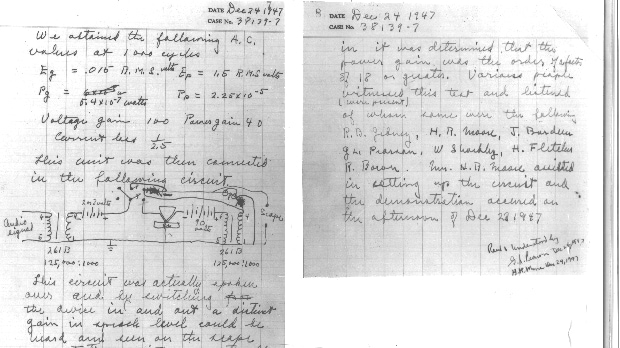 DATE Dec 24 1947
CASE No. 38139-7
We attained the following A.C.
values at 1000 cycles
Eg = .015 R.M.S. volts Ep = 1.5 R.M.S volts
Pg = 5.4 x 10⁻⁷ watts Pp = 2.25 x 10⁻⁵
Voltage gain 100 Power gain 40
Current loss 1/2.5
This unit was then connected
in the following circuit
Audio signal
Scope
261 B
125,000:1000
261 B
125,000:1000
This circuit was actually spoken
over and by switching
the device in and out a distinct
gain in speech level could be
heard and seen on the scope
8 DATE Dec 24 1947
CASE No. 38139-7
in it was determined that the
power gain was the order of
of 18 or greater. Various people
witnessed this test and listened
of whom some were the following
R.B. Gibney, H.R. Moore, J. Bardeen
G.L. Pearson, W Shockley, H. Fletcher
R. Bown. Mr. H.R. Moore assisted
in setting up the circuit and
the demonstration occurred on
the afternoon of Dec 23 1947
Read & Understood by
G.L. Pearson Dec 24, 1947
H.R. Moore Dec 24, 1947